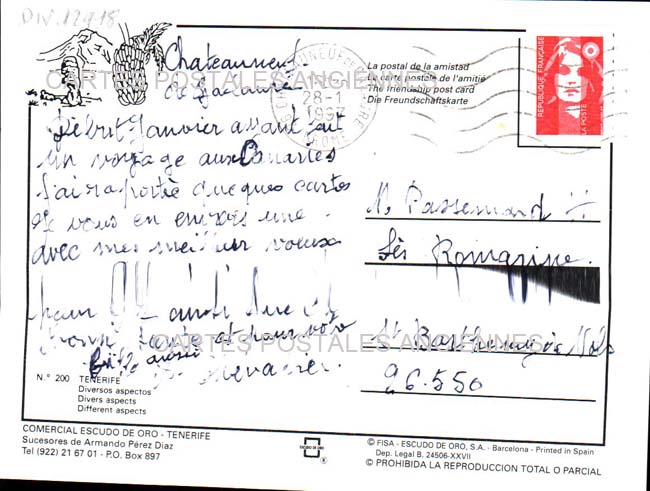 DIV.12918
Chateauneuf
de Galaure
CARTES POSTALES ANCIENNES
Début Janvier ayant fait
un voyage aux Canaries
J'ai raportié queques cartes
et vous en envois une
avec mes meilleur voeux
pour
santé et pour vous
aussi
CARTES POSTALES ANCIENNES
N.° 200 TENERIFE
Diversos aspectos
Divers aspects
Different aspects
COMERCIAL ESCUDO DE ORO - TENERIFE
Sucesores de Armando Pérez Diaz
Tel (922) 21 67 01 - P.O. Box 897
ESCUDO DE ORO
La postal de la amistad
La carte postale de l'amitié
The friendship post card
Die Freundschaftskarte
28-1
REPUBLIQUE FRANÇAISE
LA POSTE
M. Passemard
Les Romarins
St Barthelemy de Vals
26.550
© FISA - ESCUDO DE ORO, S.A. - Barcelona - Printed in Spain
Dep. Legal B. 24506-XXVII
© PROHIBIDA LA REPRODUCCION TOTAL O PARCIAL